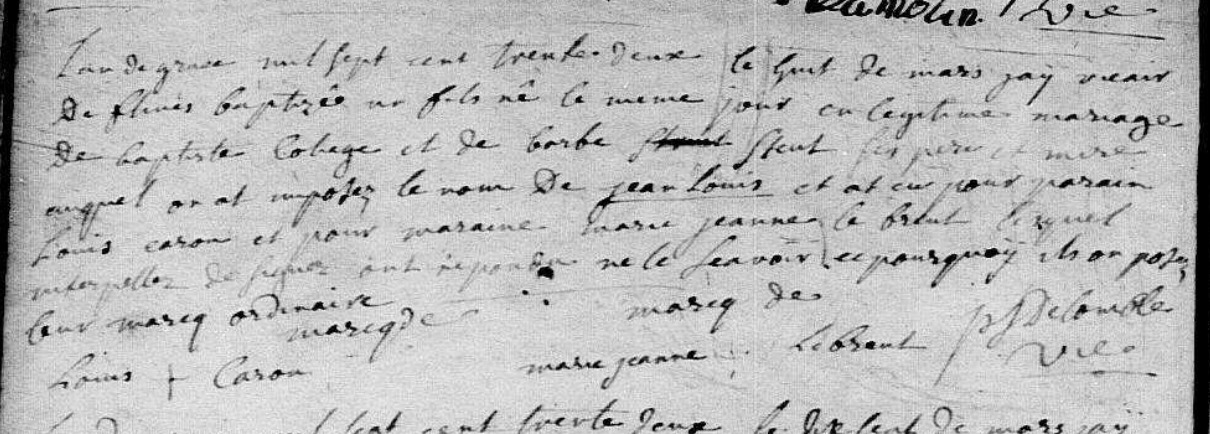 Demolin. Vic
L'an de grace mil sept cent trente deux le huit de mars jaÿ vicair
De flines baptizée un fils né le meme jour en legitime mariage
De baptiste Coliege et de barbe stent ses pere et mere
auquel on at imposez le nom De jean Louis et at eu pour parain
Louis caron et pour maraine marie jeanne le brent lesquel
interpellez de signer ont répondu ne le scavoir ce pourquoÿ ils on posez
leur marcq ordinaire
marcq de marcq de
Louis + Caron marie jeanne Lebrent
Vic
sept cent trente deux le dix sept de mars jaÿ